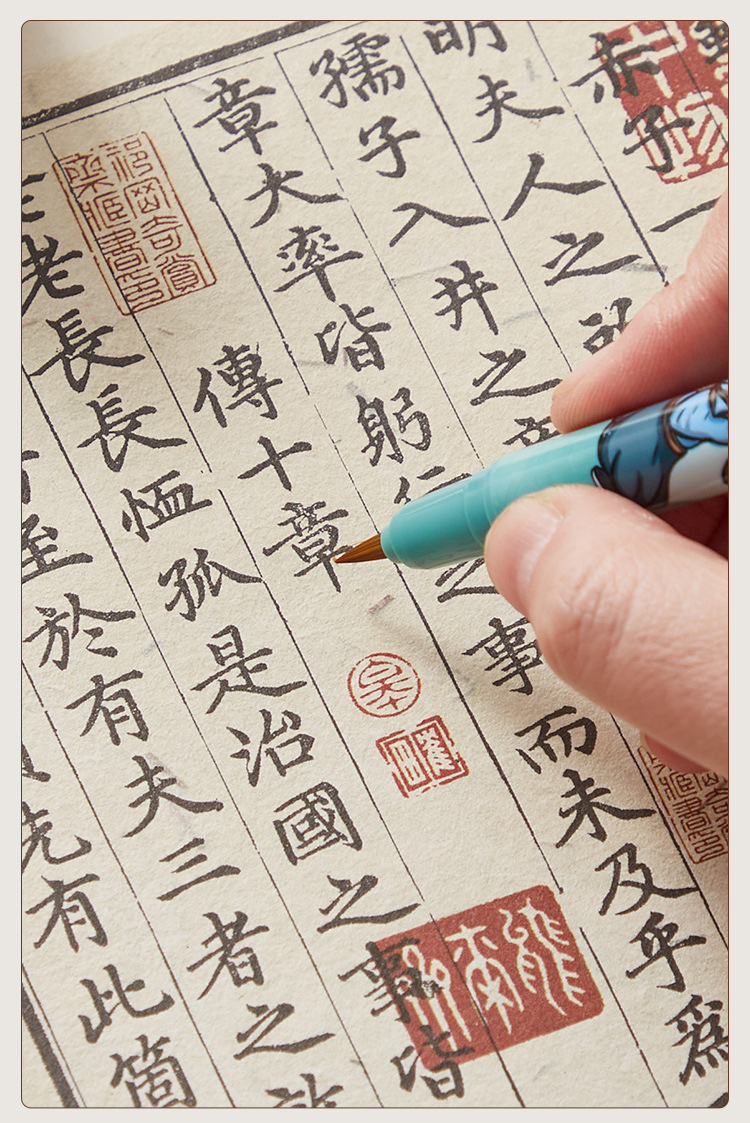 赤子一
明夫人之
孺子入井之
章大率皆躬行之事而未及乎爲
傳十章
老長長恤孤是治國之事皆
至於有夫三者之
先有此箇